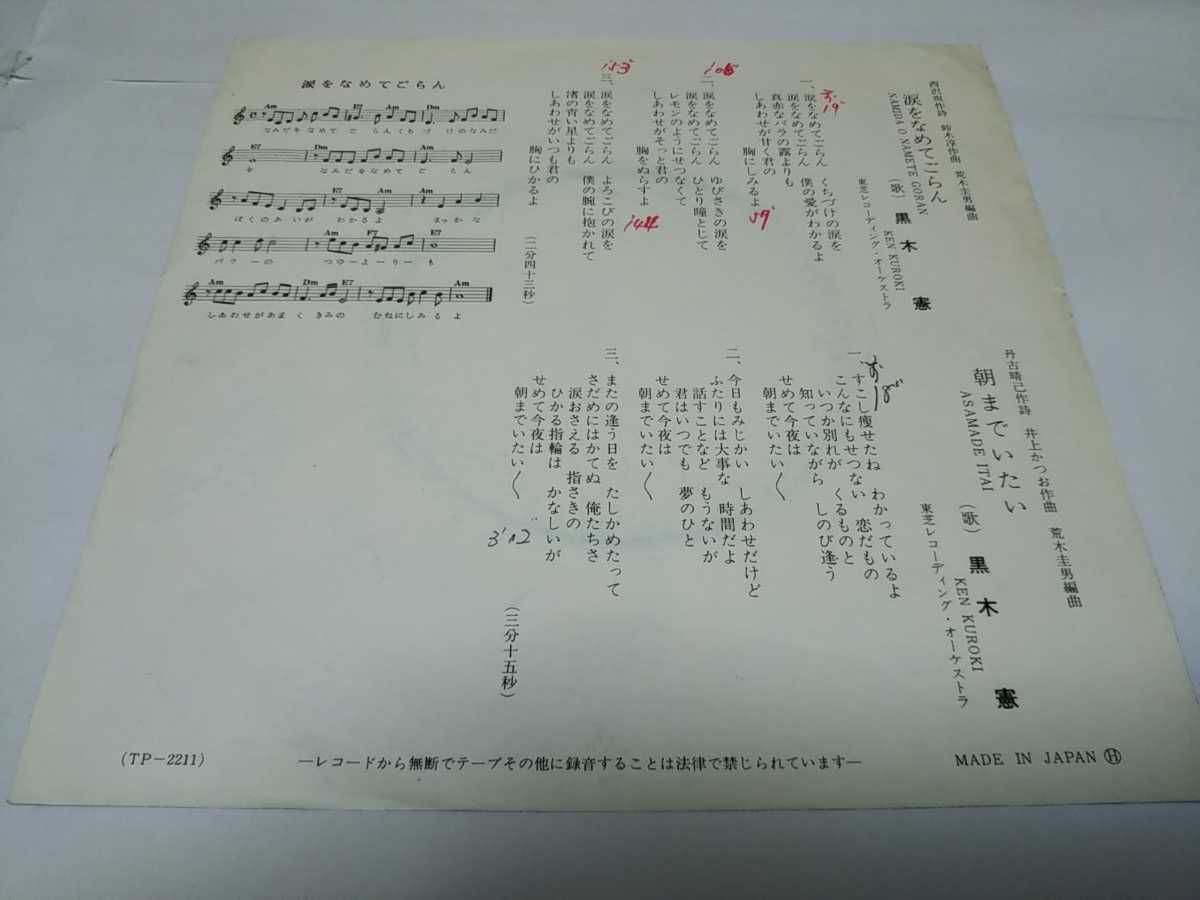 西沢爽作詩 鈴木淳作曲 荒木圭男編曲
涙をなめてごらん
NAMIDA O NAMETE GORAN
(歌) 黒木憲
KEN KUROKI
東芝レコーディング・オーケストラ
一、涙をなめてごらん くちづけの涙を
涙をなめてごらん 僕の愛がわかるよ
真赤なバラの露よりも
しあわせが甘く君の
胸にしみるよ
59"
二、涙をなめてごらん ゆびさきの涙を
涙をなめてごらん ひとり瞳とじて
レモンのようにせつなくて
しあわせがそっと君の
胸をぬらすよ
三、涙をなめてごらん よろこびの涙を
涙をなめてごらん 僕の腕に抱かれて
渚の宵い星よりも
しあわせがいつも君の
胸にひかるよ
(二分四十三秒)
涙をなめてごらん
Am E7 Am Dm
なみだをなめて ごらんくちづけのなみだ
E7 Dm Am
を なみだをなめて ごらん
E7 Am
ぼくのあいが わかるよ まっかな
Am F7 E7
バラーの つゆーよーりーも
Am Dm E7 Am
しあわせがあまく きみの むねにしみるよ
丹古晴己作詩 井上かつお作曲 荒木圭男編曲
朝までいたい
ASAMADE ITAI
(歌) 黒木憲
KEN KUROKI
東芝レコーディング・オーケストラ
一、すこし痩せたね わかっているよ
こんなにもせつない 恋だもの
いつか別れが くるものと
知っていながら しのび逢う
せめて今夜は
朝までいたい〱
二、今日もみじかい しあわせだけど
ふたりには大事な 時間だよ
話すことなど もうないが
君はいつでも 夢のひと
せめて今夜は
朝までいたい〱
三、またの逢う日を たしかめたって
さだめにはかてぬ 俺たちさ
涙おさえる 指さきの
ひかる指輪は かなしいが
せめて今夜は
朝までいたい〱
3'02"
(三分十五秒)
(TP-2211)
—レコードから無断でテープその他に録音することは法律で禁じられています—
MADE IN JAPAN Ⓗ